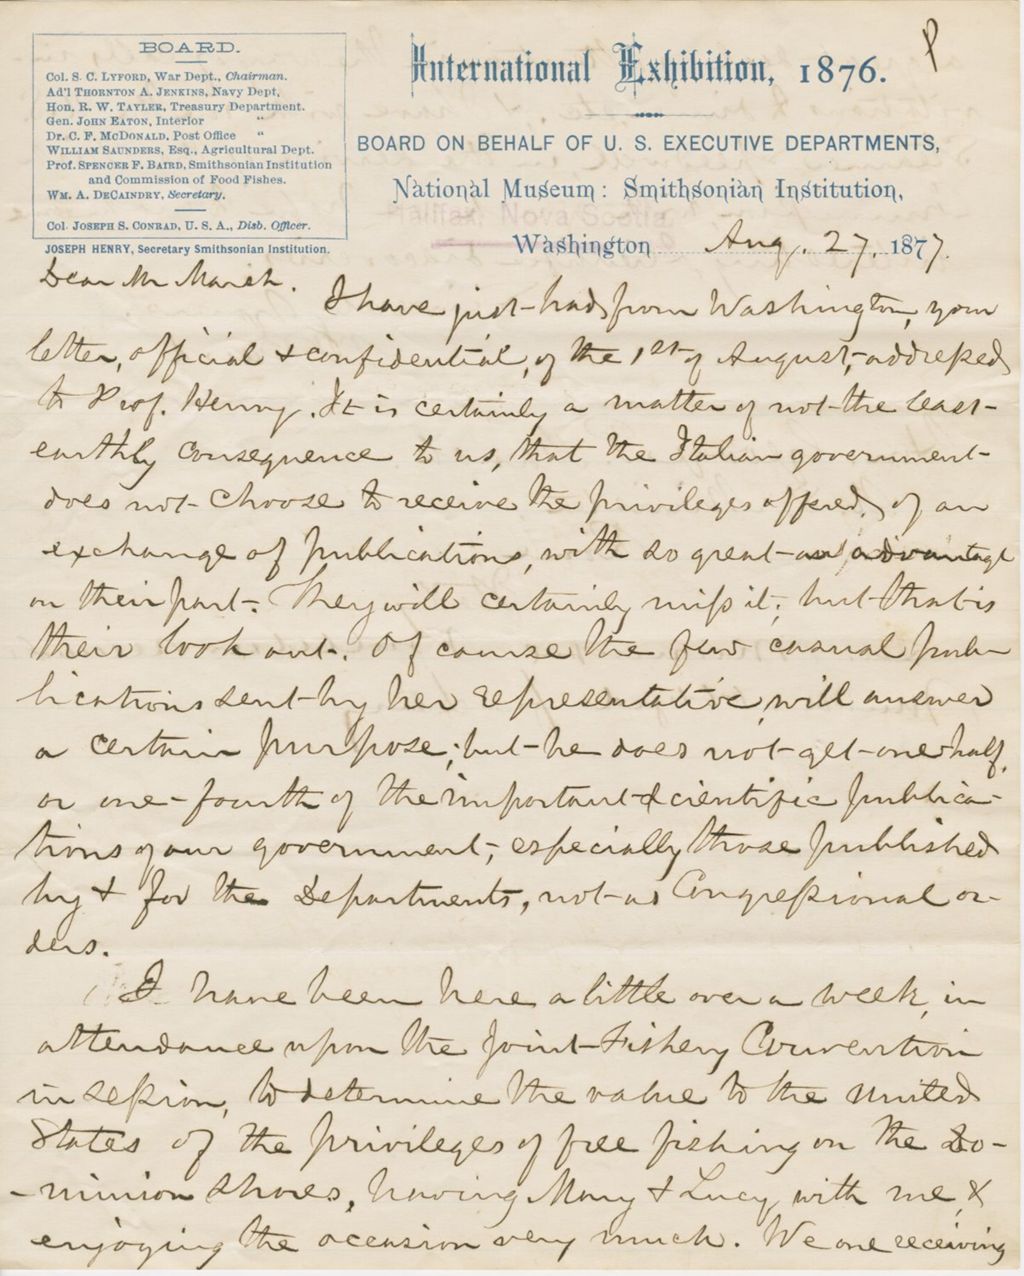 BOARD.
Col. S. C. Lyford, War Dept., Chairman.
Ad'l Thornton A. Jenkins, Navy Dept.
Hon. R. W. Tayler, Treasury Department.
Gen. John Eaton, Interior "
Dr. C. F. McDonald, Post Office "
William Saunders, Esq., Agricultural Dept.
Prof. Spencer F. Baird, Smithsonian Institution
and Commission of Food Fishes.
Wm. A. DeCaindry, Secretary.
Col. Joseph S. Conrad, U. S. A., Disb. Officer.
JOSEPH HENRY, Secretary Smithsonian Institution.
P
International Exhibition, 1876.
BOARD ON BEHALF OF U. S. EXECUTIVE DEPARTMENTS,
National Museum: Smithsonian Institution,
Halifax, Nova Scotia
Washington Aug. 27, 1877.
Dear Mr Marsh.
I have just had from Washington, your
letter, official & confidential, of the 1st of August, addressed
to Prof. Henry. It is certainly a matter of not the least
earthly consequence to us, that the Italian government
does not choose to receive the privileges offered, of an
exchange of publications, with so great an advantage
on their part. They will certainly miss it; but that is
their look out. Of course the few casual pub-
lications sent by her representative, will answer
a certain purpose; but he does not get one half,
or one-fourth of the important scientific publica-
tions of our government, especially those published
by & for the Departments, not as Congressional or-
ders.
I have been here a little over a week, in
attendance upon the Joint Fishery Convention
in session, to determine the value to the United
States of the privileges of free fishing on the Do-
-minion shores, having Mary & Lucy with me, &
enjoying the occasion very much. We are receiving